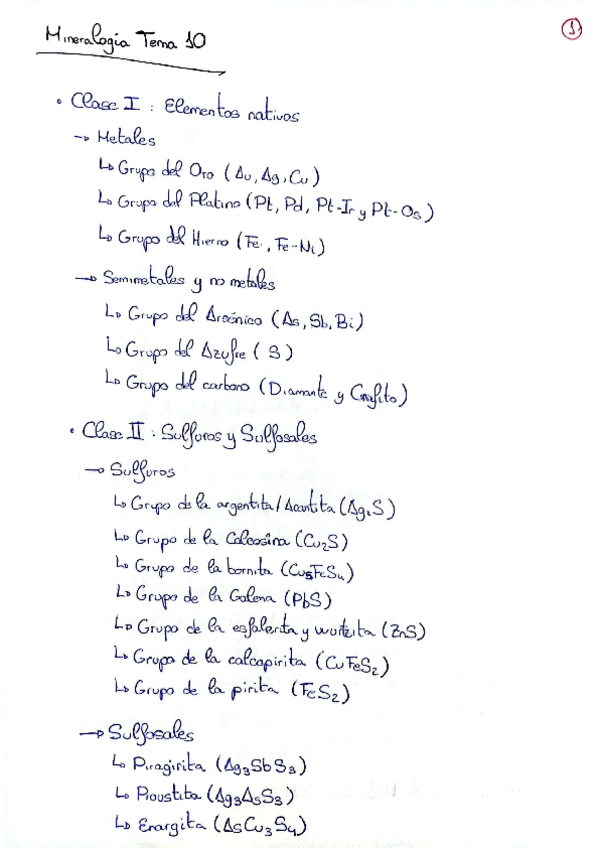 Mineralogía Tema 10
1
• Clase I : Elementos nativos
→ Metales
↳ Grupo del Oro (Au, Ag, Cu)
↳ Grupo del Platino (Pt, Pd, Pt-Ir y Pt-Os)
↳ Grupo del Hierro (Fe, Fe-Ni)
→ Semimetales y no metales
↳ Grupo del Arsénico (As, Sb, Bi)
↳ Grupo del Azufre (S)
↳ Grupo del carbono (Diamante y Grafito)
• Clase II : Sulfuros y Sulfosales
→ Sulfuros
↳ Grupo de la argentita/Acantita (Ag₂S)
↳ Grupo de la Calcosina (Cu₂S)
↳ Grupo de la bornita (Cu₅FeS₄)
↳ Grupo de la Galena (PbS)
↳ Grupo de la esfalerita y wurtzita (ZnS)
↳ Grupo de la calcopirita (CuFeS₂)
↳ Grupo de la pirita (FeS₂)
→ Sulfosales
↳ Piragirita (Ag₃SbS₃)
↳ Proustita (Ag₃AsS₃)
↳ Enargita (AsCu₃S₄)